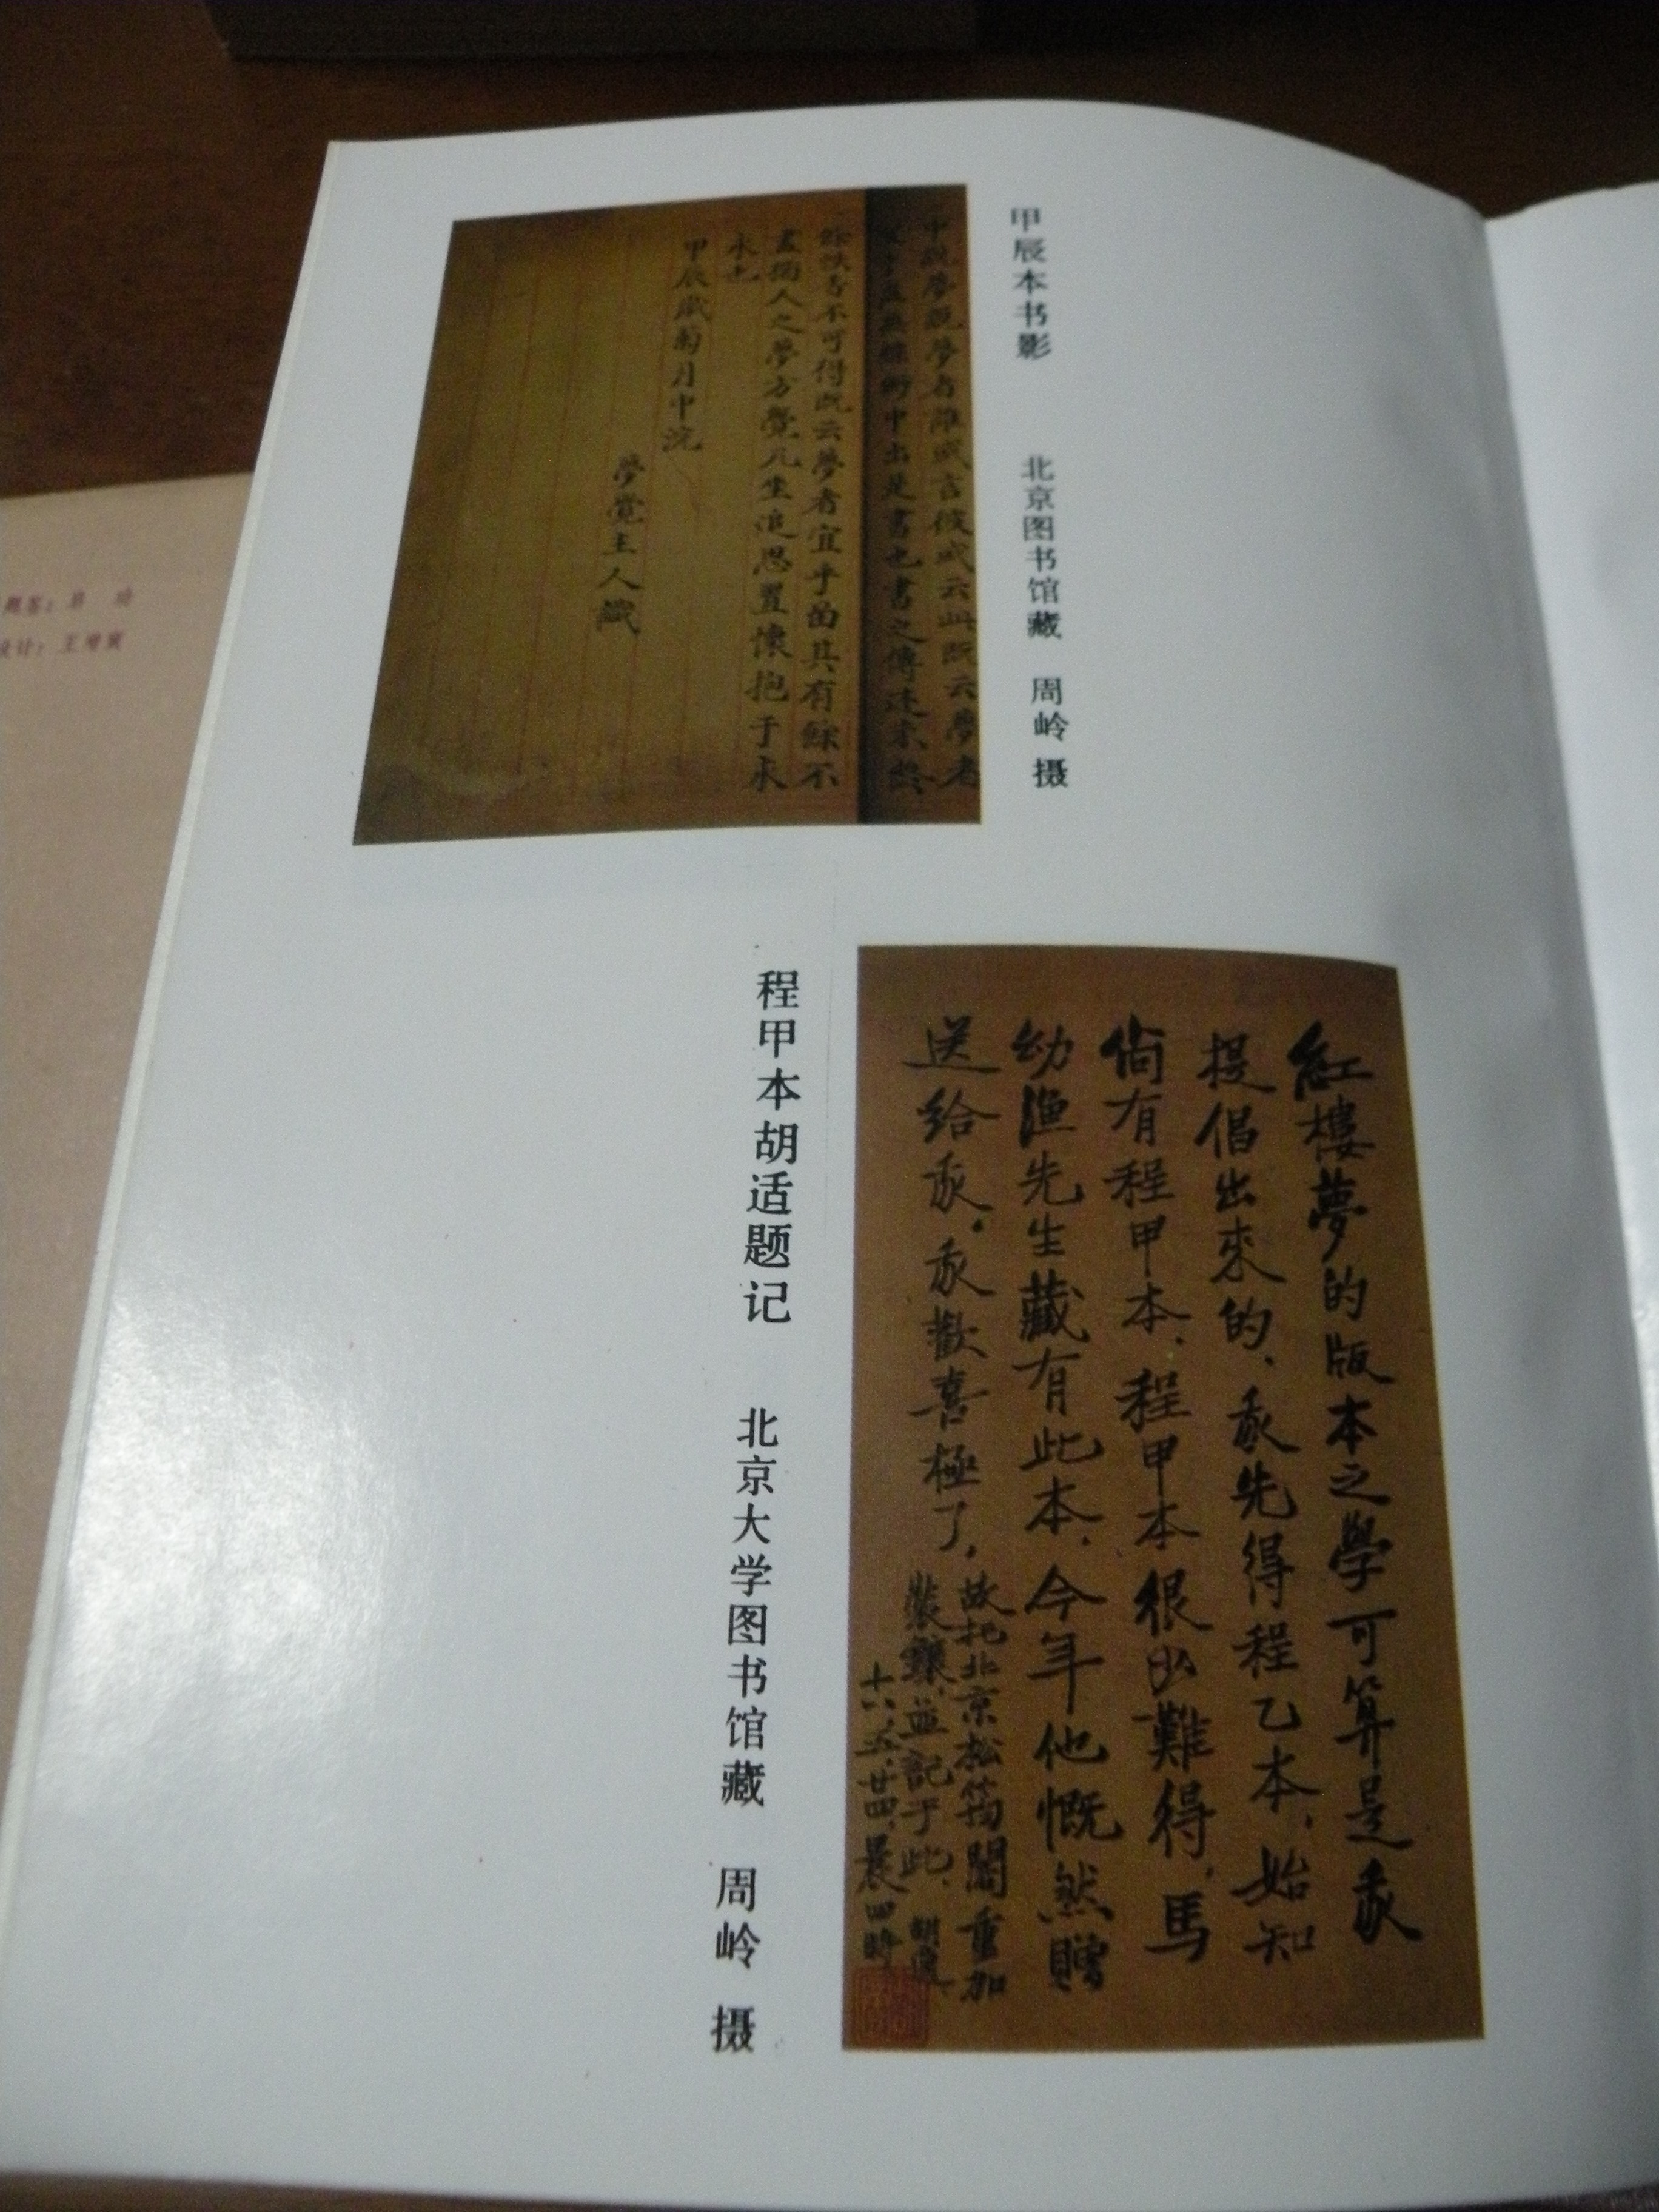 甲辰本书影 北京图书馆藏 周岭 摄
中說夢說夢者誰或言彼或云此既云夢者
中出是書也書之傳述未終
餘帙杳不可得既云夢者宜乎留其有餘不
盡猶人之夢方覺兀坐追思置懷抱于永
永也
甲辰歲菊月中浣
夢覺主人識
紅樓夢的版本之學可算是我
提倡出來的、我先得程乙本、始知
尚有程甲本、程甲本很少難得、馬
幼漁先生藏有此本、今年他慨然贈
送給我、我歡喜極了、
故托北京松筠閣重加
裝鑲、並記于此、胡適、
十八、五、廿四、晨四時
程甲本胡适题记 北京大学图书馆藏 周岭 摄
设计：王增寅